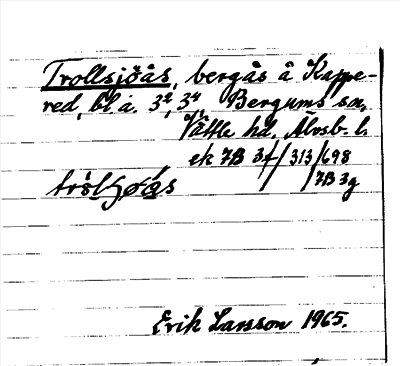 Trollsjöås, bergås å Kappe-
red, bl. a. 3², 3⁴ Bergums sn,
Vättle hd, Älvsb. l.
ek 7B 3f/313/698
/ /7B 3g
Erik Larsson 1965.